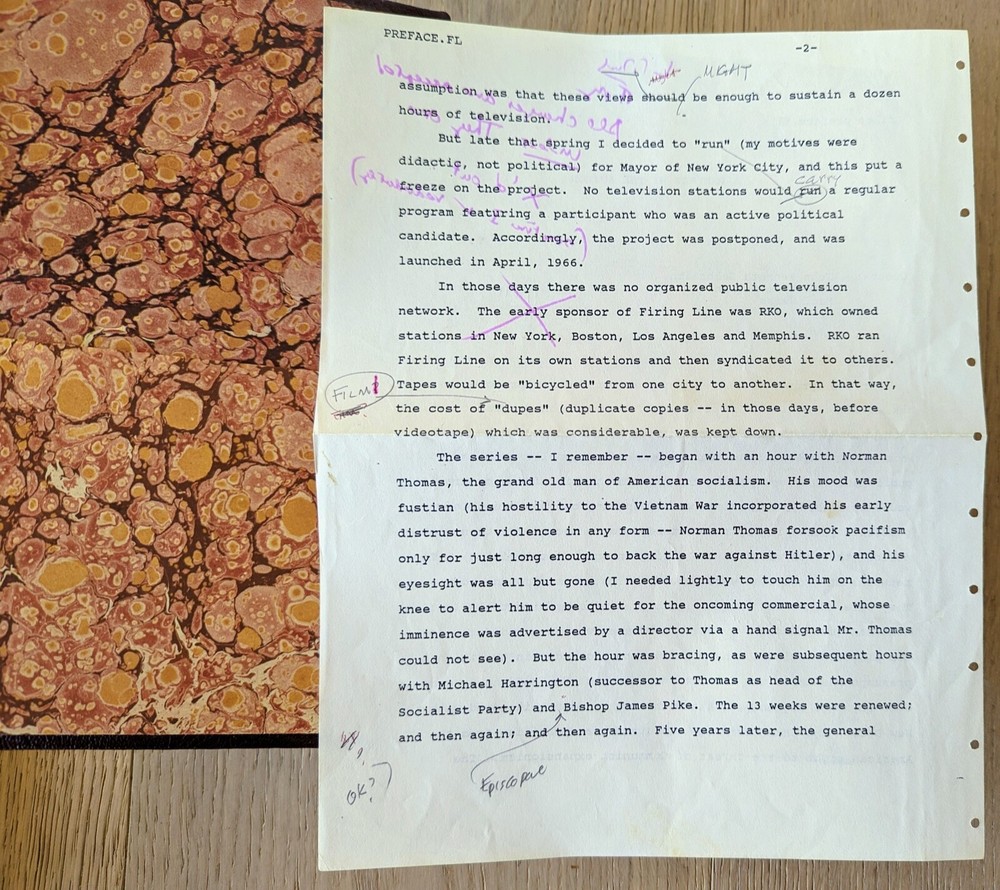 PREFACE.FL
-2-
MIGHT
assumption was that these views should be enough to sustain a dozen
hours of television.
But late that spring I decided to "run" (my motives were
didactic, not political) for Mayor of New York City, and this put a
carry
freeze on the project. No television stations would run a regular
program featuring a participant who was an active political
candidate. Accordingly, the project was postponed, and was
launched in April, 1966.
In those days there was no organized public television
network. The early sponsor of Firing Line was RKO, which owned
stations in New York, Boston, Los Angeles and Memphis. RKO ran
Firing Line on its own stations and then syndicated it to others.
FILM
Tapes would be "bicycled" from one city to another. In that way,
the cost of "dupes" (duplicate copies -- in those days, before
videotape) which was considerable, was kept down.
The series -- I remember -- began with an hour with Norman
Thomas, the grand old man of American socialism. His mood was
fustian (his hostility to the Vietnam War incorporated his early
distrust of violence in any form -- Norman Thomas forsook pacifism
only for just long enough to back the war against Hitler), and his
eyesight was all but gone (I needed lightly to touch him on the
knee to alert him to be quiet for the oncoming commercial, whose
imminence was advertised by a director via a hand signal Mr. Thomas
could not see). But the hour was bracing, as were subsequent hours
with Michael Harrington (successor to Thomas as head of the
Socialist Party) and Bishop James Pike. The 13 weeks were renewed;
and then again; and then again. Five years later, the general
Episcopal
OK?